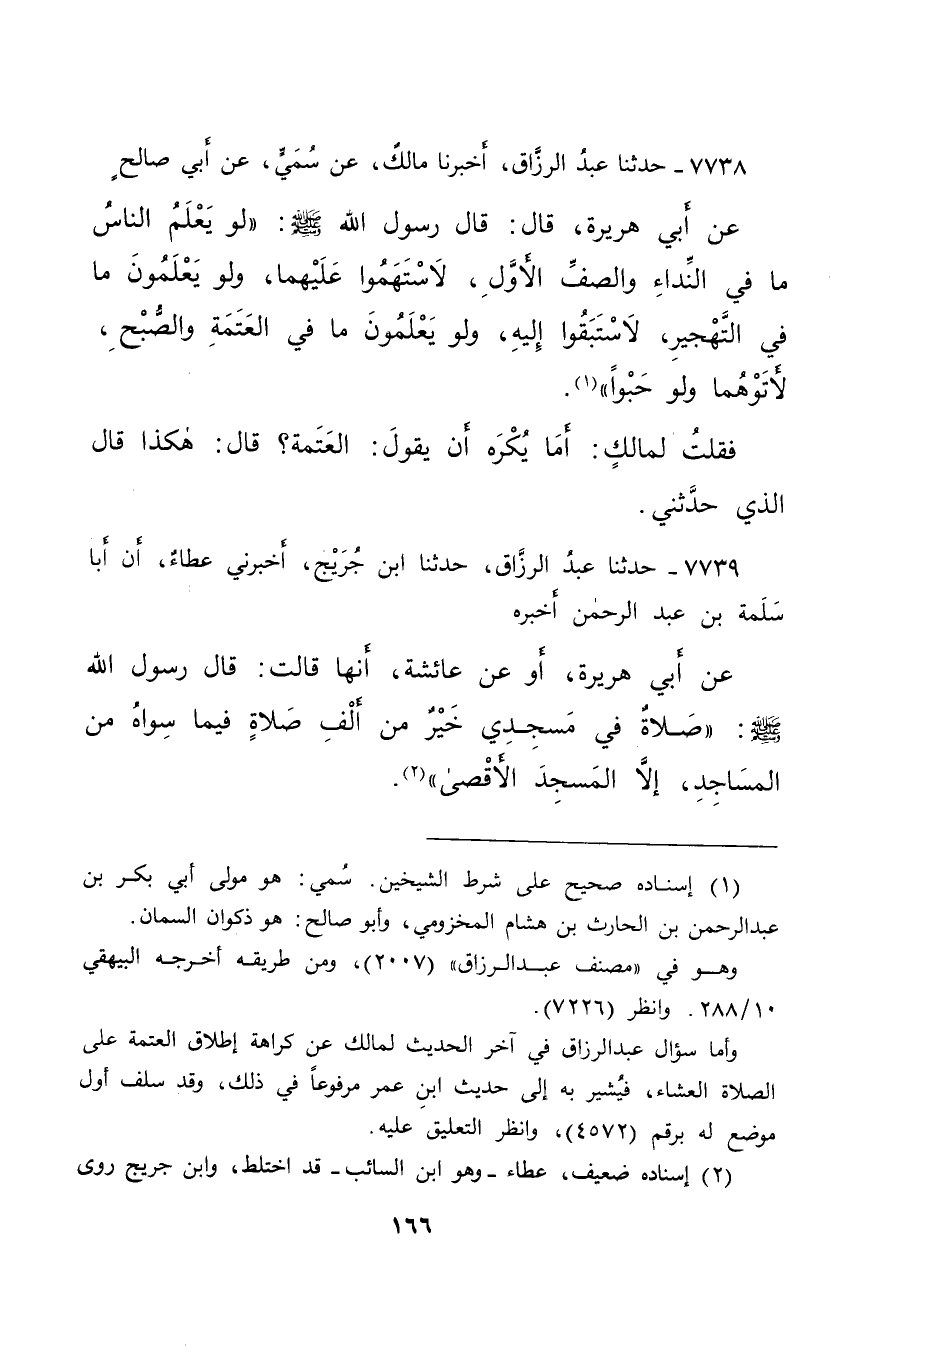 ٧٧٣٨ ـ حدثنا عبدُ الرزَّاق، أَخبرنا مالكٌ، عن سُمَيٍّ، عن أَبي صالحٍ
عن أَبي هريرة، قال: قال رسول الله ﷺ: «لو يَعْلَمُ الناسُ
ما في النِّداءِ والصفِّ الأَوَّلِ، لَاسْتَهَمُوا عَلَيْهِما، ولو يَعْلَمُونَ ما
في التَّهْجيرِ، لَاسْتَبَقُوا إِليهِ، ولو يَعْلَمُونَ ما في العَتَمَةِ والصُّبْحِ،
لَأَتَوْهُما ولو حَبْواً»(١).
فقلتُ لمالكٍ: أَمَا يُكْرَه أَن يقولَ: العَتَمة؟ قال: هٰكذا قال
الذي حدَّثني.
٧٧٣٩ ـ حدثنا عبدُ الرزَّاق، حدثنا ابن جُرَيْج، أَخبرني عطاءٌ، أَن أَبا
سَلَمة بن عبد الرحمٰن أَخبره
عن أَبي هريرة، أَو عن عائشة، أَنها قالت: قال رسول الله
ﷺ: «صَلاةٌ في مَسجِدِي خَيْرٌ من أَلْفِ صَلاةٍ فيما سِواهُ من
المسَاجِدِ، إلَّا المَسجِدَ الأَقْصىٰ»(٢).
(١) إسناده صحيح على شرط الشيخين. سُمي: هو مولى أبي بكر بن
عبدالرحمن بن الحارث بن هشام المخزومي، وأبو صالح: هو ذكوان السمان.
وهو في «مصنف عبدالرزاق» (٢٠٠٧)، ومن طريقه أخرجه البيهقي
٢٨٨/١٠. وانظر (٧٢٢٦).
وأما سؤال عبدالرزاق في آخر الحديث لمالك عن كراهة إطلاق العتمة على
الصلاة العشاء، فيُشير به إلى حديث ابنِ عمر مرفوعاً في ذلك، وقد سلف أول
موضع له برقم (٤٥٧٢)، وانظر التعليق عليه.
(٢) إسناده ضعيف، عطاء ـ وهو ابن السائب ـ قد اختلط، وابن جريج روى
١٦٦